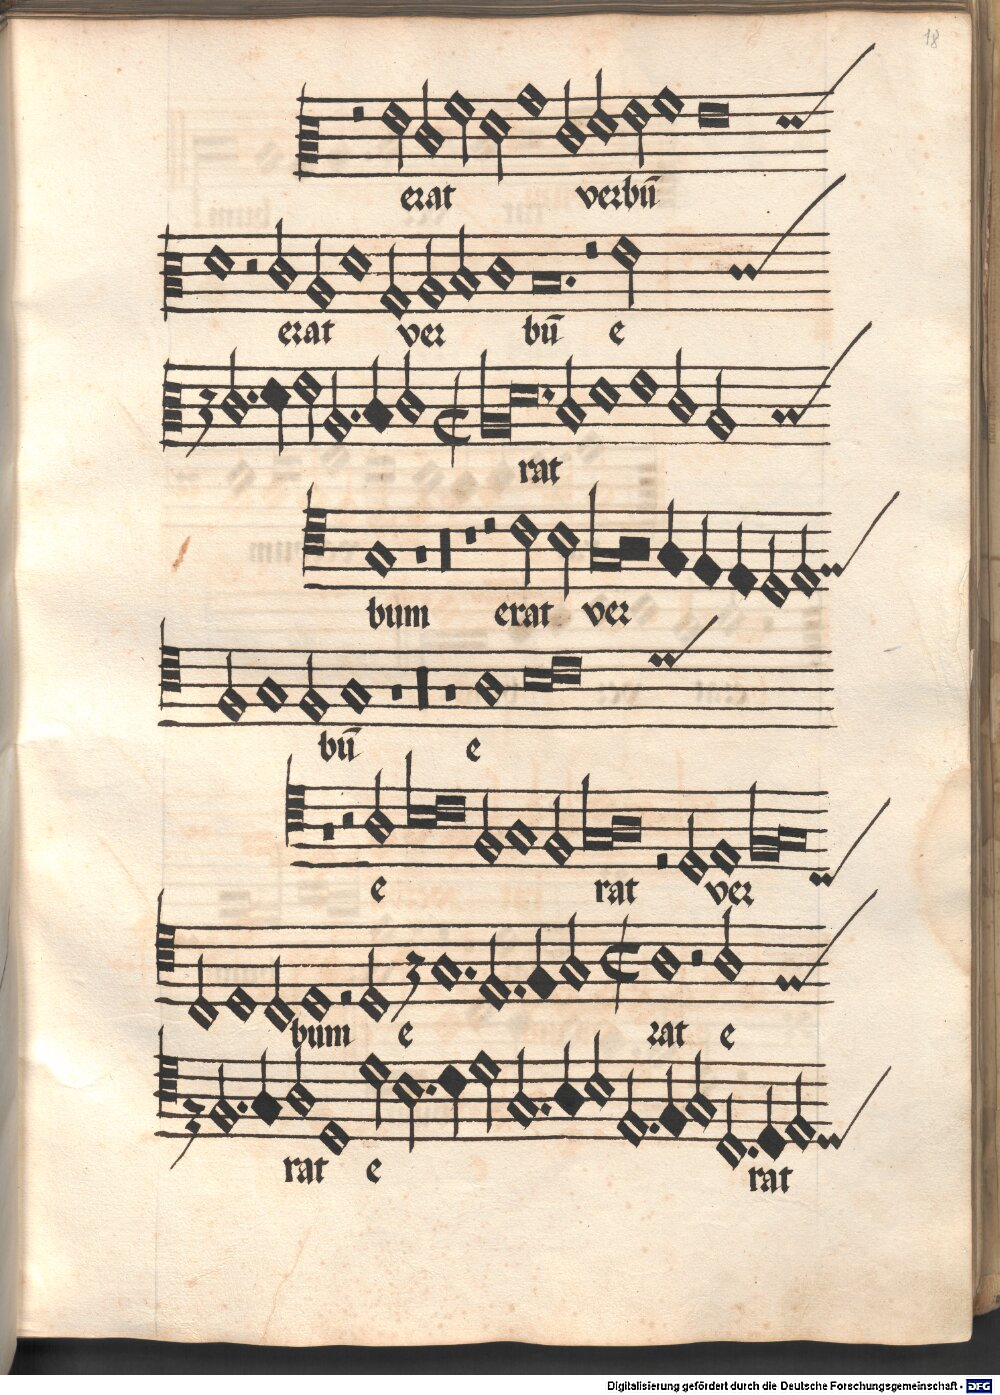 18
erat verbū
erat ver bū e
rat
bum erat ver
bū e
e rat ver
bum e rat e
rat e rat
Digitalisierung gefördert durch die Deutsche Forschungsgemeinschaft - DFG